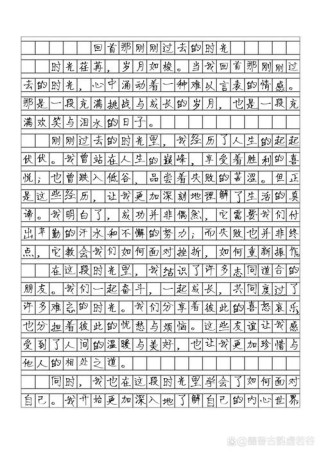 回首那刚刚过去的时光
时光荏苒，岁月如梭。当我回首那刚刚过
去的时光，心中涌动着一种难以言表的情感。
那是一段充满挑战与成长的岁月，也是一段充
满欢笑与泪水的日子。
刚刚过去的时光里，我经历了人生的起起
伏伏。我曾站在人生的巅峰，享受着胜利的喜
悦；也曾跌入低谷，品尝着失败的苦涩。但正
是这些经历，让我更加深刻地理解了生活的真
谛。我明白了，成功并非偶然，它需要我们付
出辛勤的汗水和不懈的努力；而失败也并非终
点，它教会我们如何面对挫折，如何重新振作。
在这段时光里，我结识了许多志同道合的
朋友。我们一起奋斗，一起成长，共同度过了
许多难忘的时光。我们分享着彼此的喜怒哀乐
也分担着彼此的忧愁与烦恼。这些友谊让我感
受到了人间的温暖与美好，也让我更加珍惜与
他人的相处之道。
同时，我也在这段时光里学会了如何面对
自己。我开始更加深入地了解自己的内心世界